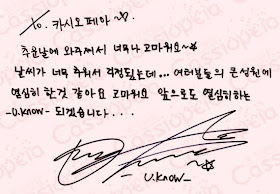 To. 카시오페아 ☆
추운날에 와주셔서 너무나 고마워요~☆
날씨가 너무 추워서 걱정됬는데... 여러분들의 큰성원에
열심히 할것 같아요 고마워요 앞으로도 열심히하는
-U.KNOW- 되겠습니다...
-U.KNOW-
Cassiopeia